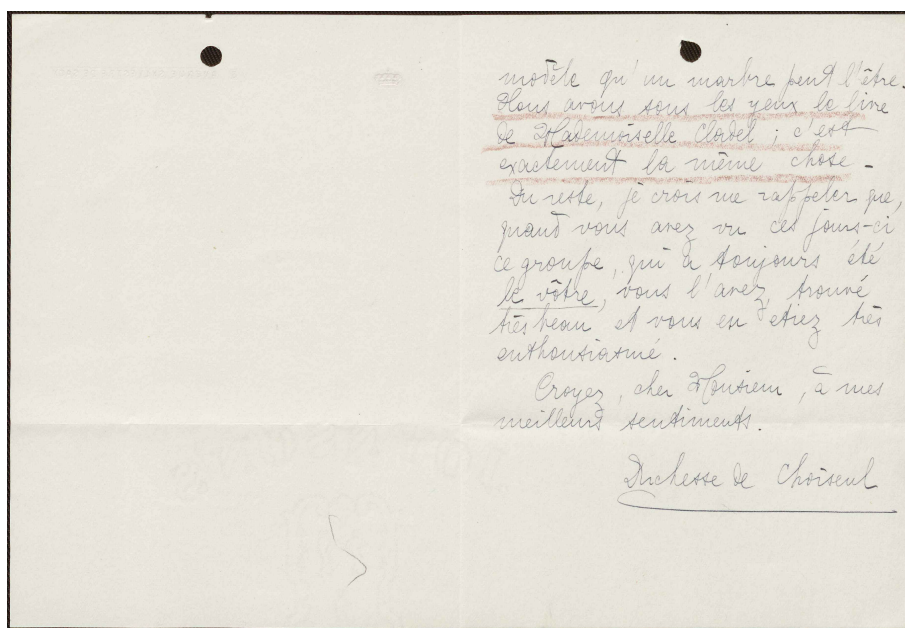 modèle qu'un marbre peut l'être.
Nous avons sous les yeux le livre
de Mademoiselle Cladel ; c'est
exactement la même chose -
Du reste, je crois me rappeler que,
quand vous avez vu ces jours-ci
ce groupe, qui a toujours été
le vôtre, vous l'avez trouvé
très beau et vous en étiez très
enthousiasmé.
Croyez, cher Monsieur, à mes
meilleurs sentiments.
Duchesse de Choiseul